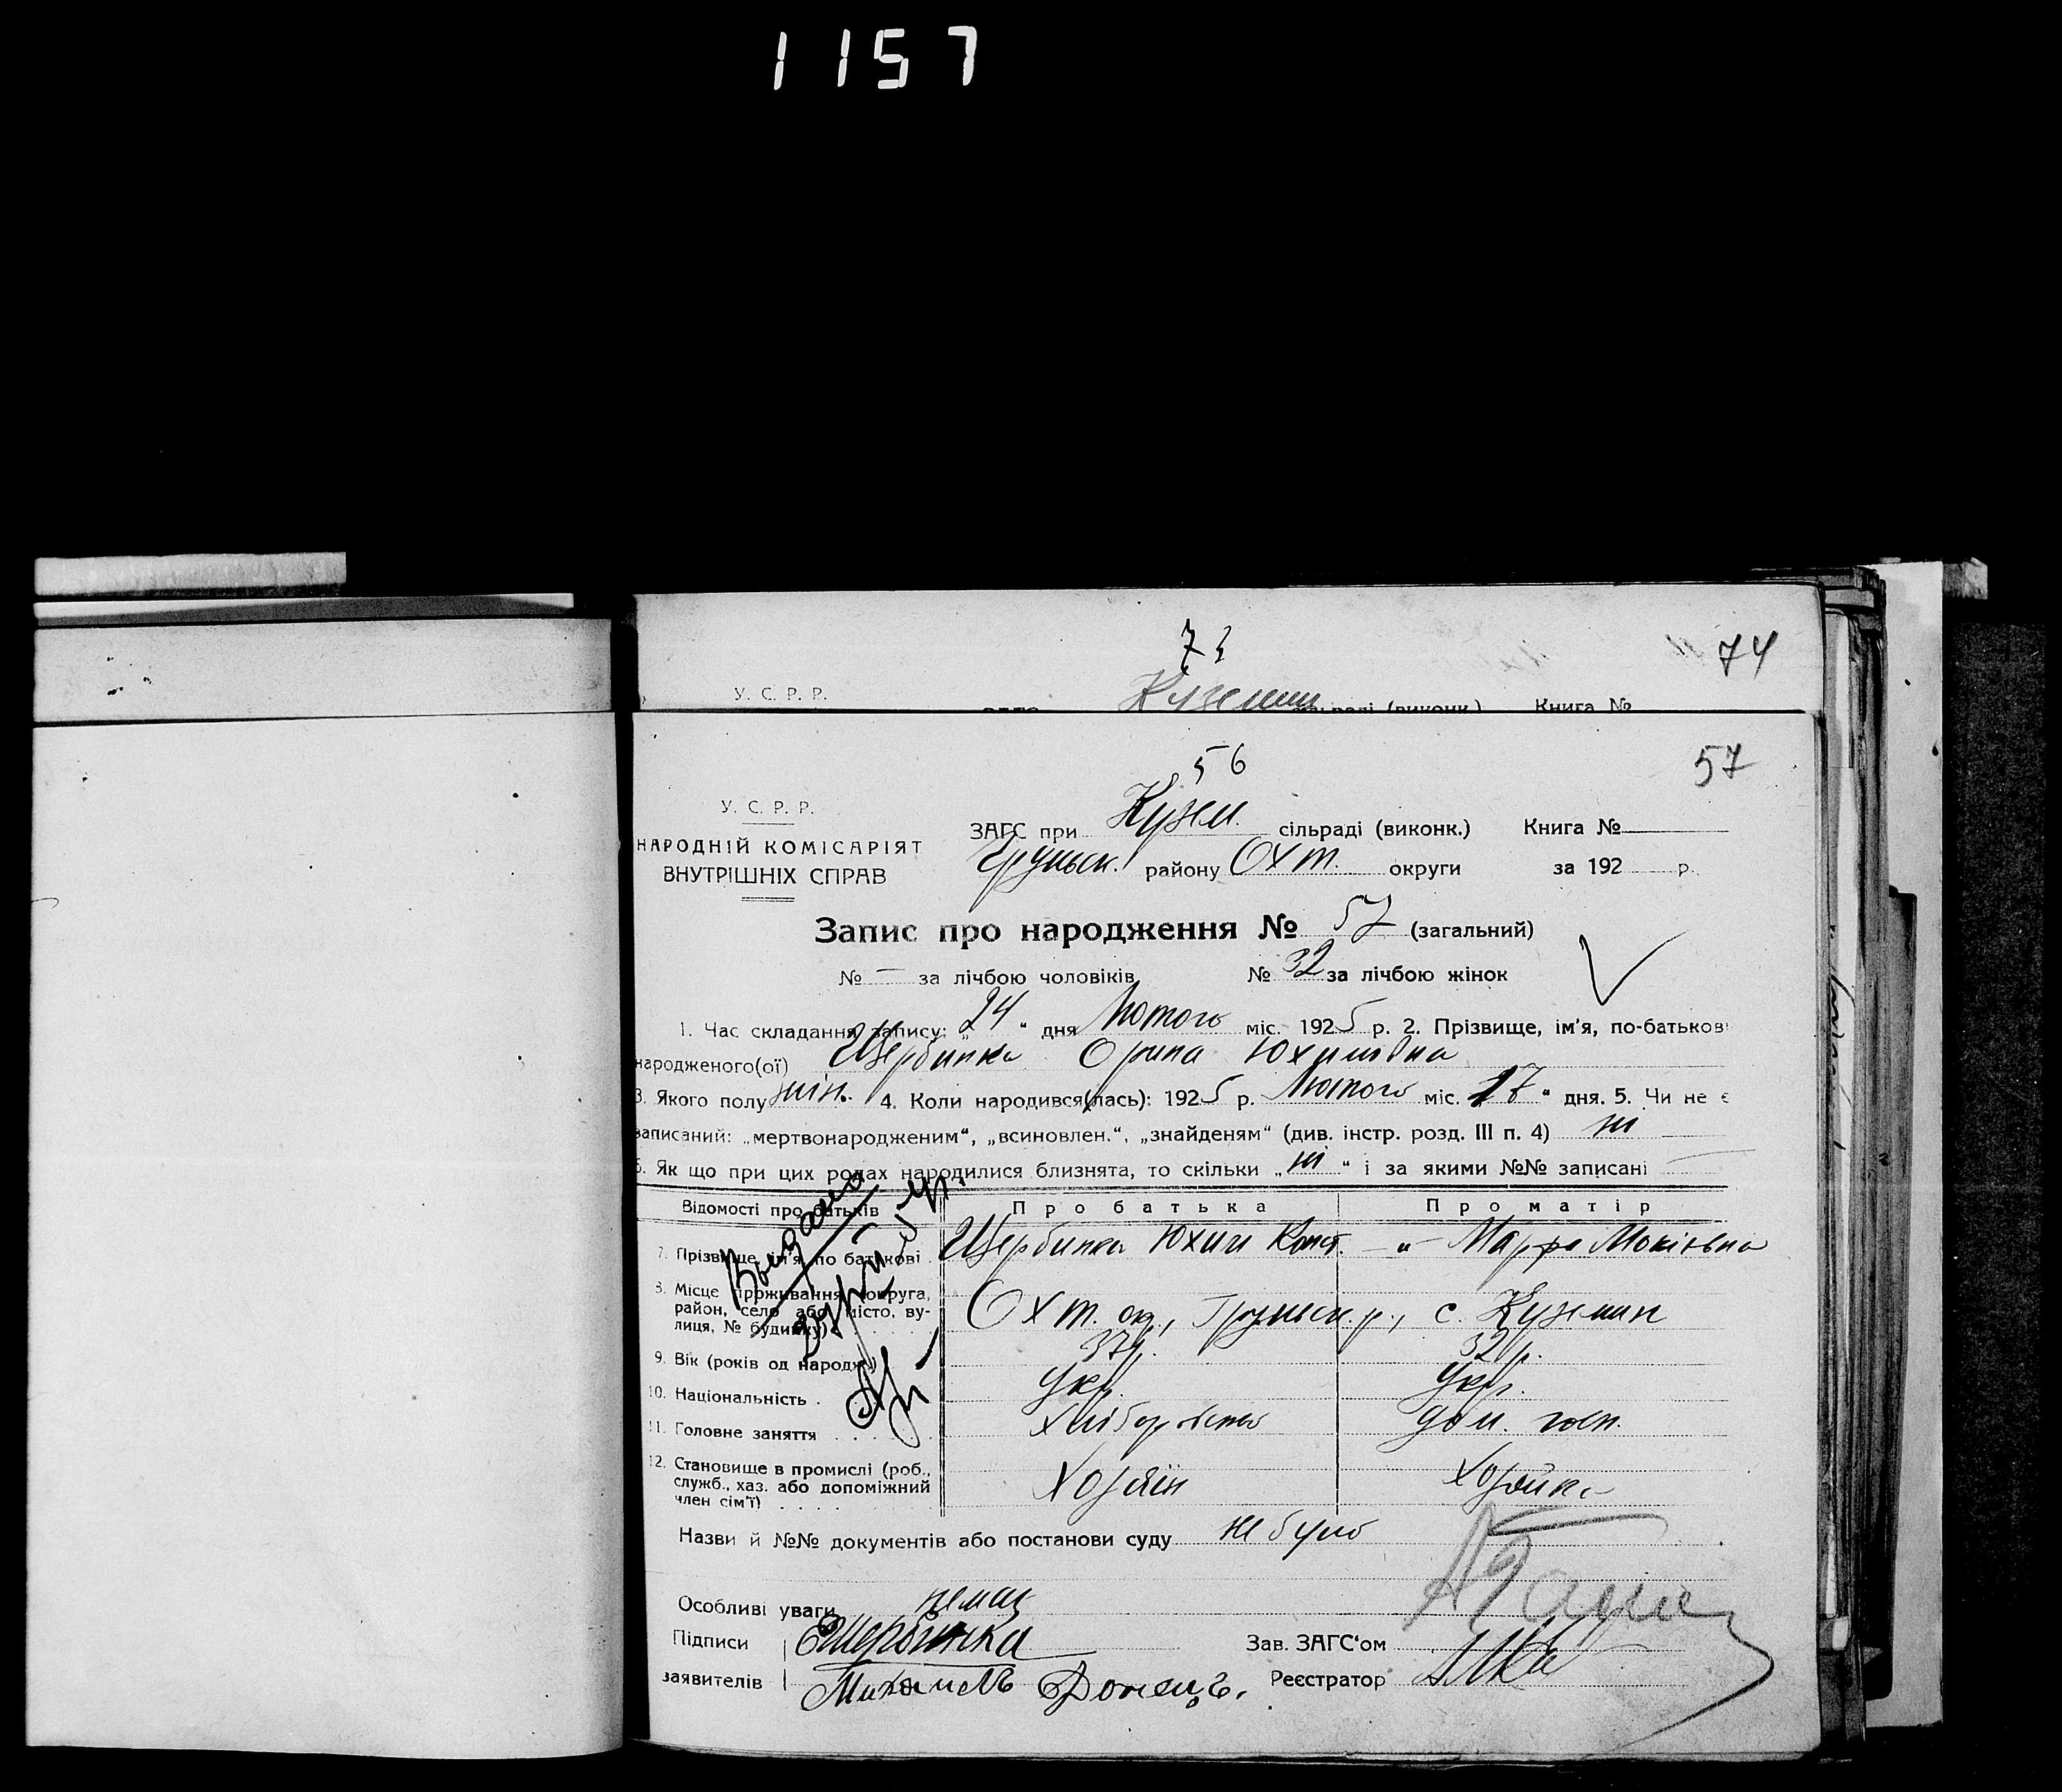 1157
73
74
У. С. Р. Р.
Куземин сільраді (виконк.) Книга №
56
57
У. С. Р. Р.
НАРОДНІЙ КОМІСАРІЯТ
ВНУТРІШНІХ СПРАВ
ЗАГС при Кузем. сільраді (виконк.) Книга №
Груньск. району Охт. округи за 192 р.
Запис про народження № 57 (загальний)
№ — за лічбою чоловіків № 32 за лічбою жінок
1. Час складання запису: „24“ дня Лютого міс. 1925 р. 2. Прізвище, ім'я, по-батькові
народженого(ої) Щербинка Орина Юхимовна
3. Якого полу жін. 4. Коли народився(лась): 1925 р. Лютого міс. 17“ дня. 5. Чи не є
записаний: „мертвонародженим“, „всиновлен.“, „знайденям“ (див. інстр. розд. III п. 4) ні
6. Як що при цих родах народилися близнята, то скільки „ні“ і за якими №№ записані —
Відомості про батьків Про батька Про матір
7. Прізвище, ім'я, по батькові Щербинка Юхим Конст. —„— Марфа Мокіївна
8. Місце проживання (округа,
район, село або місто, ву-
лиця, № будинку) Охт. окр., Груньск. р., с. Куземин
9. Вік (років од народж.) 37 р. 32 р.
10. Національність Укр. Укр.
11. Головне заняття Хліборобство дом. госп.
12. Становище в промислі (роб.,
служб., хаз. або допоміжний
член сім'ї) Хозяїн Хозяйка
Назви й №№ документів або постанови суду не було
Особливі уваги немає
Підписи Е Щербинка Зав. ЗАГС'ом
заявителів Михаилъ Донецъ. Реєстратор